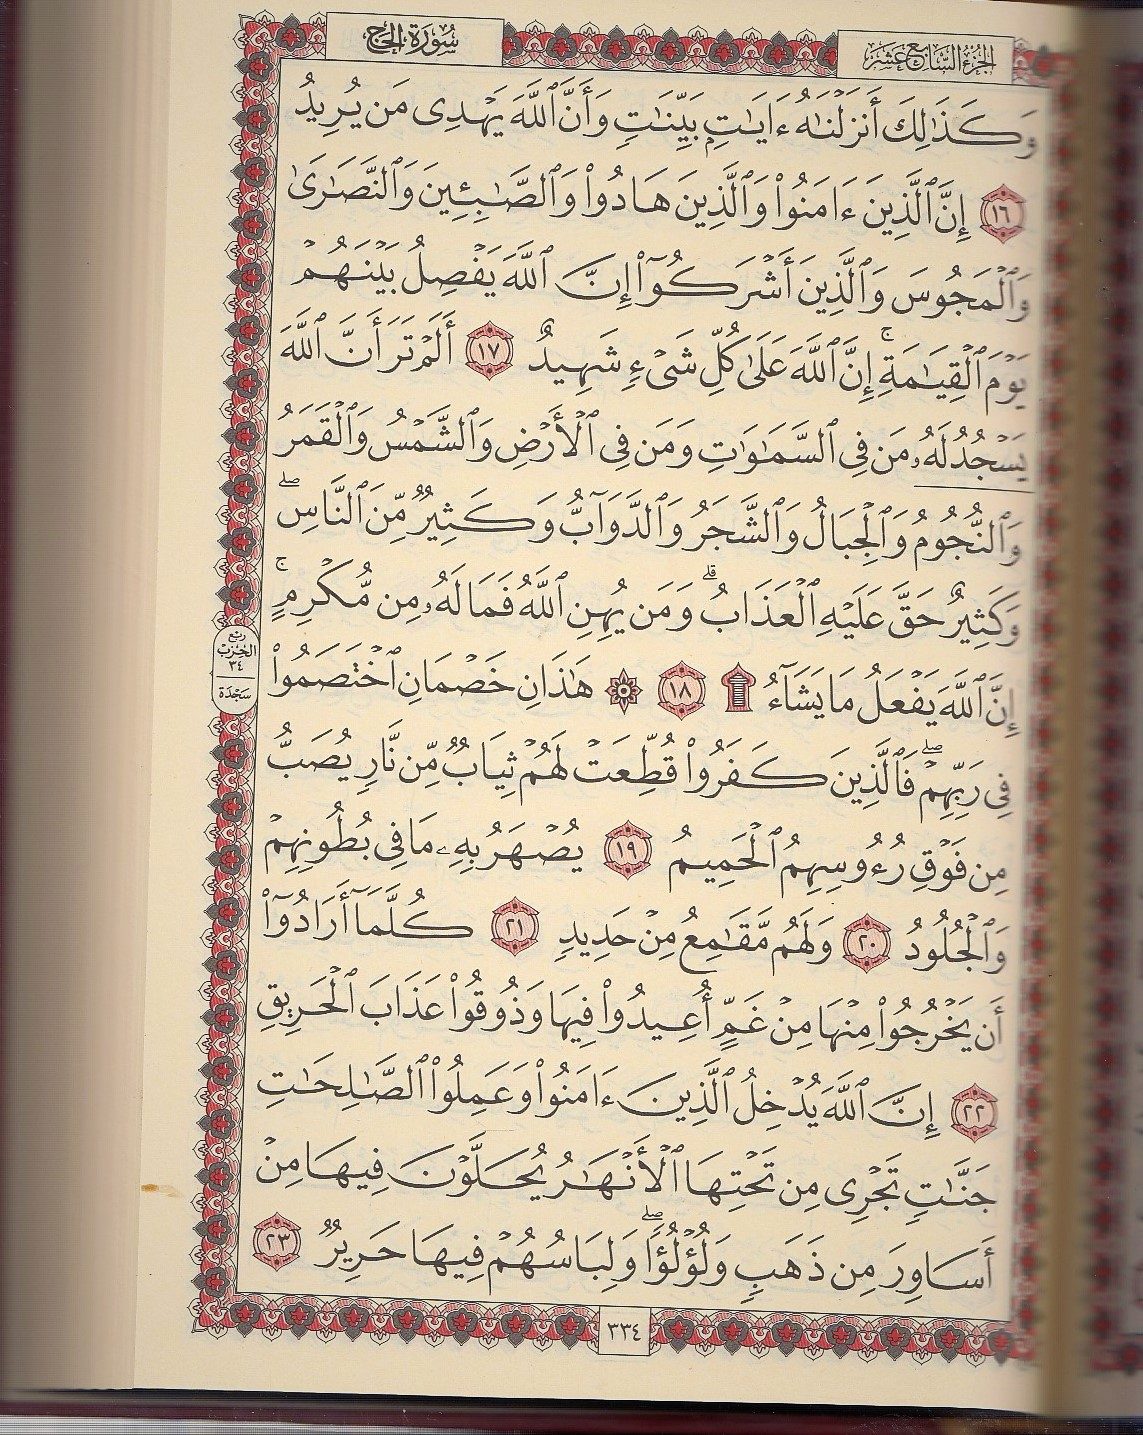 سورة الحج
الجزء السابع عشر
وَكَذَٰلِكَ أَنزَلْنَٰهُ ءَايَٰتٍۭ بَيِّنَٰتٍ وَأَنَّ ٱللَّهَ يَهْدِى مَن يُرِيدُ
١٦ إِنَّ ٱلَّذِينَ ءَامَنُوا۟ وَٱلَّذِينَ هَادُوا۟ وَٱلصَّٰبِـِٔينَ وَٱلنَّصَٰرَىٰ
وَٱلْمَجُوسَ وَٱلَّذِينَ أَشْرَكُوٓا۟ إِنَّ ٱللَّهَ يَفْصِلُ بَيْنَهُمْ
يَوْمَ ٱلْقِيَٰمَةِ ۚ إِنَّ ٱللَّهَ عَلَىٰ كُلِّ شَىْءٍ شَهِيدٌ ١٧ أَلَمْ تَرَ أَنَّ ٱللَّهَ
يَسْجُدُ لَهُۥ مَن فِى ٱلسَّمَٰوَٰتِ وَمَن فِى ٱلْأَرْضِ وَٱلشَّمْسُ وَٱلْقَمَرُ
وَٱلنُّجُومُ وَٱلْجِبَالُ وَٱلشَّجَرُ وَٱلدَّوَآبُّ وَكَثِيرٌ مِّنَ ٱلنَّاسِ ۖ
وَكَثِيرٌ حَقَّ عَلَيْهِ ٱلْعَذَابُ ۗ وَمَن يُهِنِ ٱللَّهُ فَمَا لَهُۥ مِن مُّكْرِمٍ ۚ
إِنَّ ٱللَّهَ يَفْعَلُ مَا يَشَآءُ ۩ ١٨ ۞ هَٰذَانِ خَصْمَانِ ٱخْتَصَمُوا۟
فِى رَبِّهِمْ ۖ فَٱلَّذِينَ كَفَرُوا۟ قُطِّعَتْ لَهُمْ ثِيَابٌ مِّن نَّارٍ يُصَبُّ
مِن فَوْقِ رُءُوسِهِمُ ٱلْحَمِيمُ ١٩ يُصْهَرُ بِهِۦ مَا فِى بُطُونِهِمْ
وَٱلْجُلُودُ ٢٠ وَلَهُم مَّقَٰمِعُ مِنْ حَدِيدٍ ٢١ كُلَّمَآ أَرَادُوٓا۟
أَن يَخْرُجُوا۟ مِنْهَا مِنْ غَمٍّ أُعِيدُوا۟ فِيهَا وَذُوقُوا۟ عَذَابَ ٱلْحَرِيقِ
٢٢ إِنَّ ٱللَّهَ يُدْخِلُ ٱلَّذِينَ ءَامَنُوا۟ وَعَمِلُوا۟ ٱلصَّٰلِحَٰتِ
جَنَّٰتٍ تَجْرِى مِن تَحْتِهَا ٱلْأَنْهَٰرُ يُحَلَّوْنَ فِيهَا مِنْ
أَسَاوِرَ مِن ذَهَبٍ وَلُؤْلُؤًا ۖ وَلِبَاسُهُمْ فِيهَا حَرِيرٌ ٢٣
ربع
الحزب
٣٤
سجدة
٣٣٤